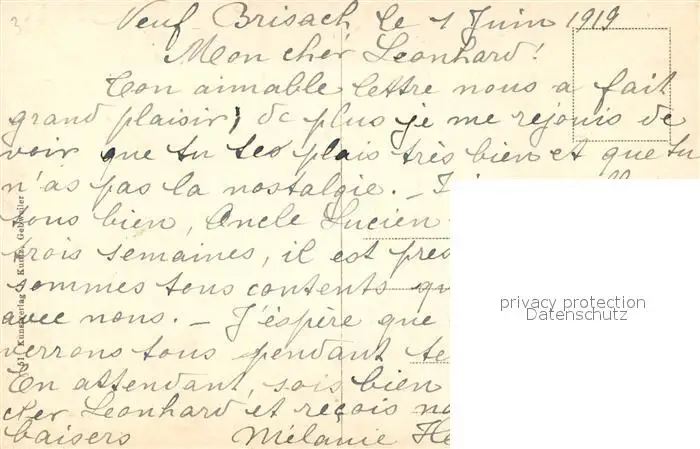 Neuf-Brisach le 1 Juin 1919
Mon cher Leonhard!
Ton aimable lettre nous a fait
grand plaisir; de plus je me rejouis de
voir que tu tes plais très bien et que tu
n'as pas la nostalgie. –
tous bien, Oncle Lucien
trois semaines, il est
sommes tous contents
avec nous. – J'éspère que
verrons tous pendant
En attendant, sois bien
cher Leonhard et reçois
baisers Mélanie
privacy protection
Datenschutz
Kunstverlag Kuntz, Gebweiler